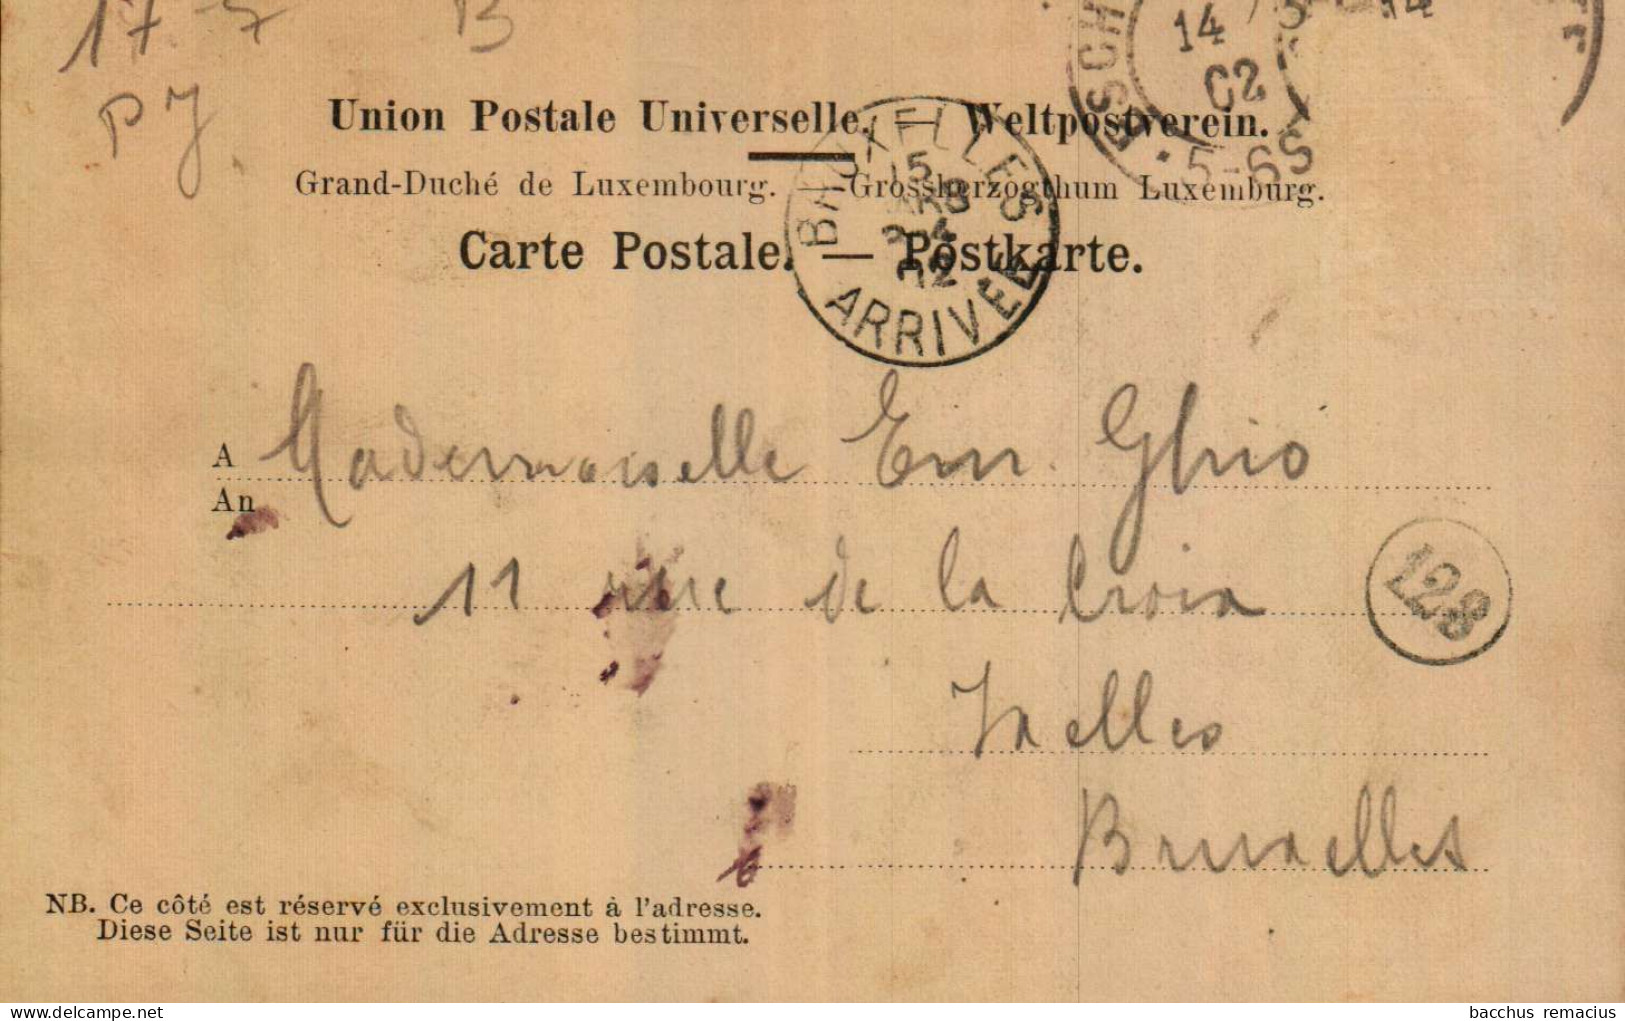 17-7 B
PJ
14
14
C2
5-6S
ESCH
Union Postale Universelle. — Weltpostverein.
Grand-Duché de Luxembourg. — Grossherzogthum Luxemburg.
Carte Postale. — Postkarte.
BRUXELLES
15
02
ARRIVÉE
A Mademoiselle Em. Ghió
An
11 rue de la Croix
128
Ixelles
Bruxelles
NB. Ce côté est réservé exclusivement à l'adresse.
Diese Seite ist nur für die Adresse bestimmt.
bacchus remacius